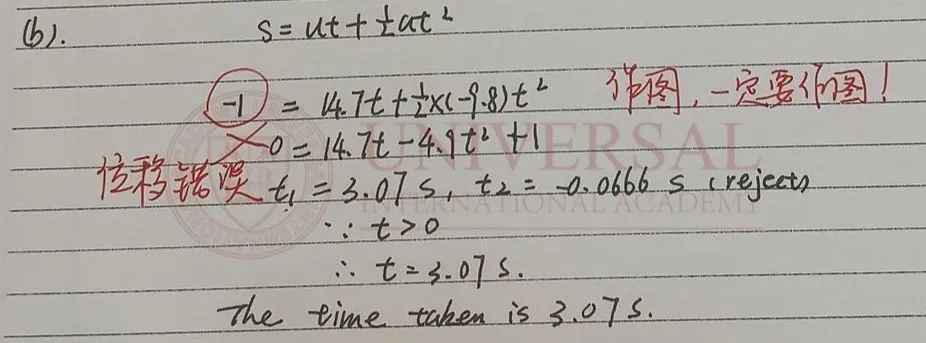 (b). s = ut + ½at²
-1 = 14.7t + ½×(-9.8)t² 作图，一定要作图！
0 = 14.7t - 4.9t² + 1
位移错误 t₁ = 3.07 s, t₂ = -0.0666 s (reject)
∵ t > 0
∴ t = 3.07 s.
The time taken is 3.07 s.
UNIVERSAL
INTERNATIONAL ACADEMY